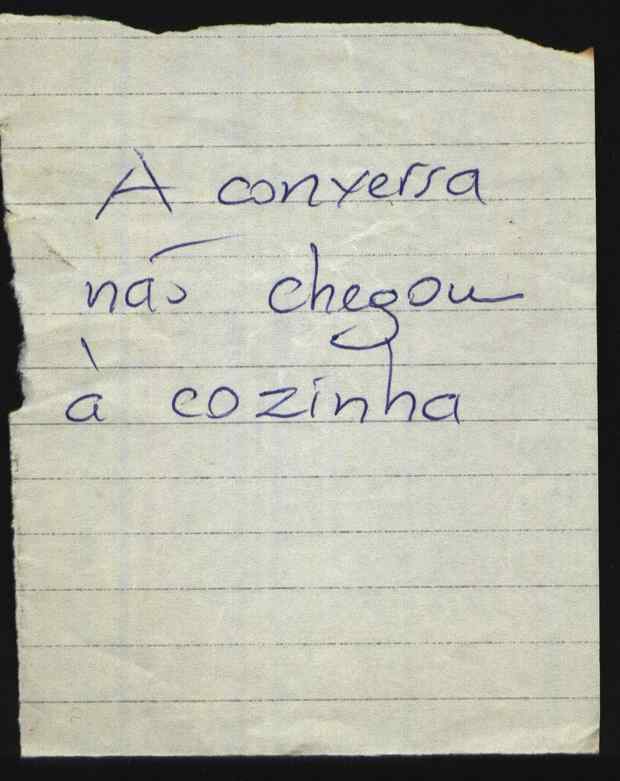 A conversa
não chegou
à cozinha